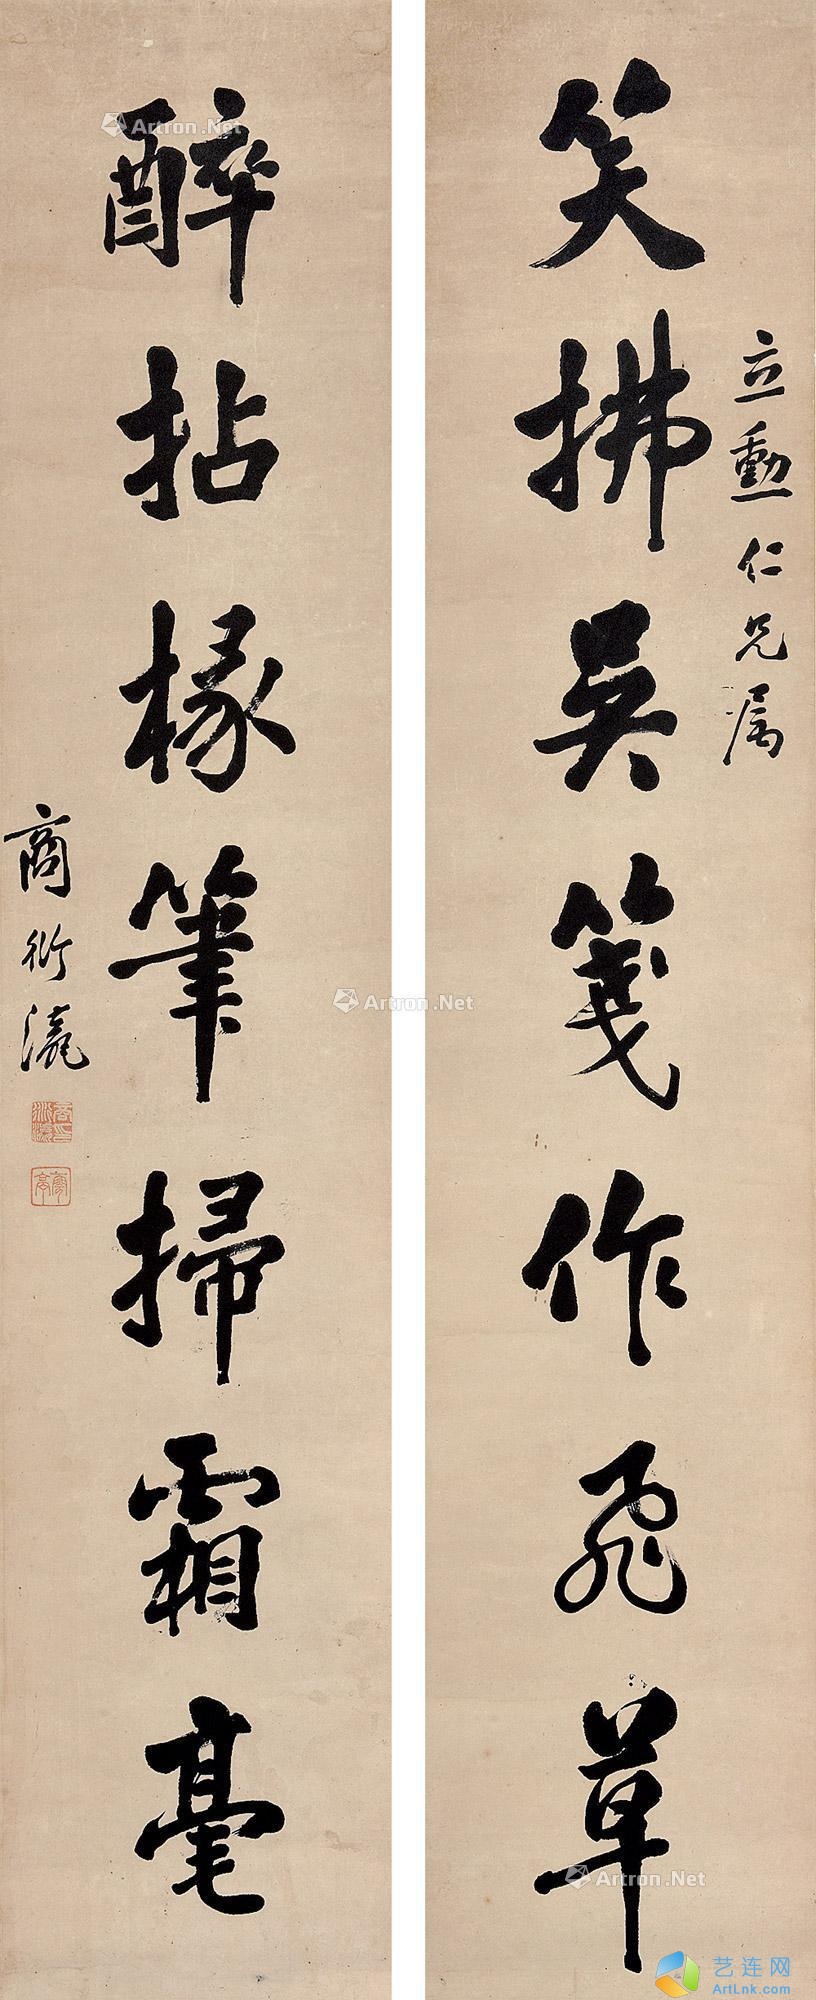 立勳仁兄属
笑拂吴箋作飛草
醉拈椽筆掃霜毫
商衍瀛
Artron.Net
Artron.Net
Artron.Net
Artron.Net
Artron.Net
艺连网
ArtLnk.com